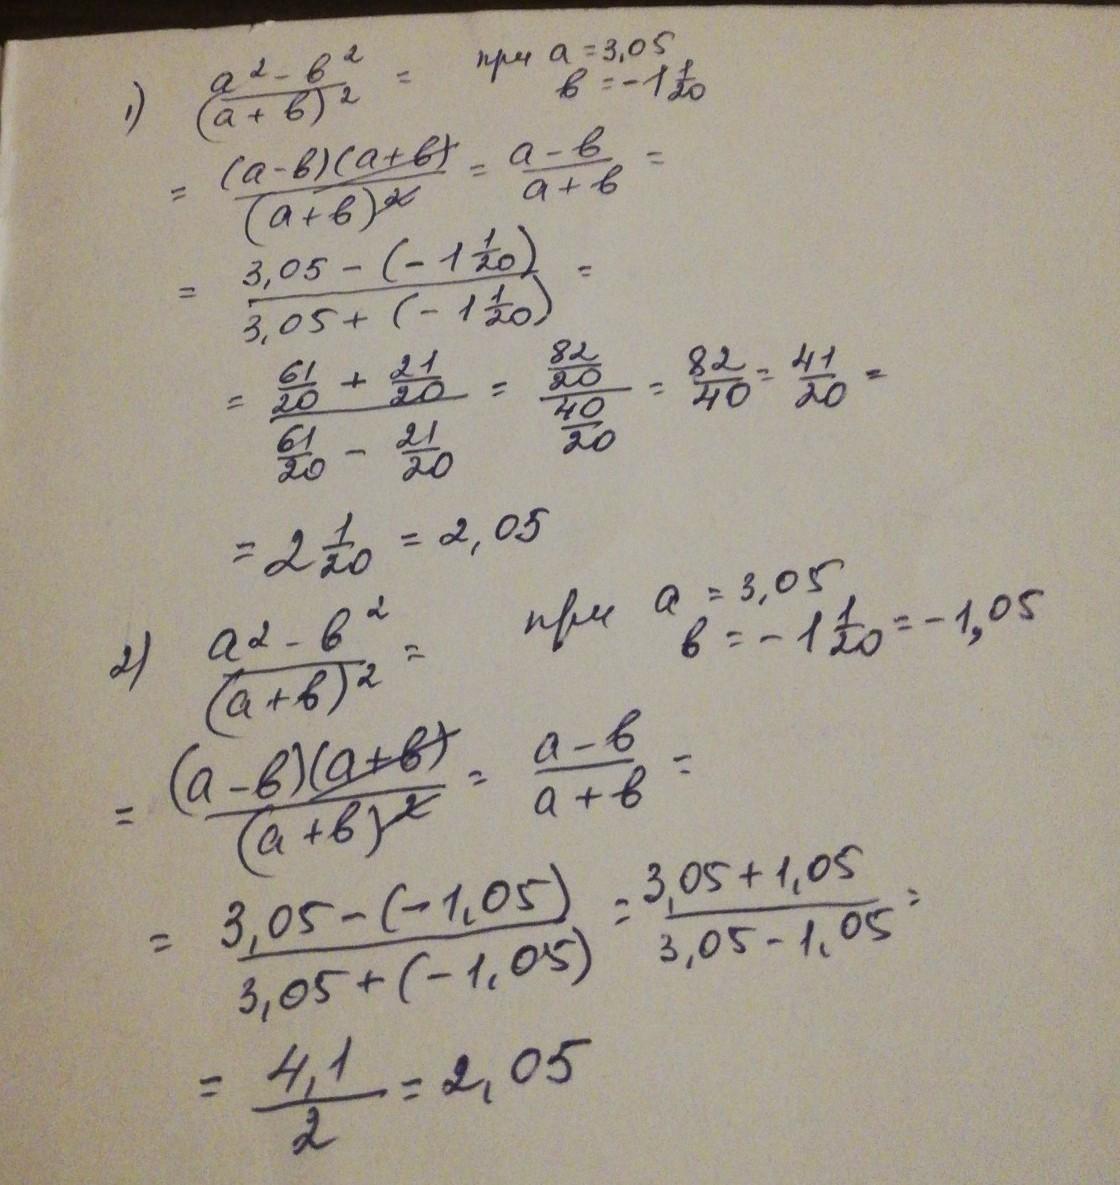 1) (a² - b²)/(a + b)² = при a = 3,05
b = -1 1/20
= (a-b)(a+b)/(a+b)² = (a-b)/(a+b) =
= (3,05 - (-1 1/20))/(3,05 + (-1 1/20)) =
= (61/20 + 21/20)/(61/20 - 21/20) = (82/20)/(40/20) = 82/40 = 41/20 =
= 2 1/20 = 2,05
2) (a² - b²)/(a+b)² = при a = 3,05
b = -1 1/20 = -1,05
= (a-b)(a+b)/(a+b)² = (a-b)/(a+b) =
= (3,05-(-1,05))/(3,05+(-1,05)) = (3,05+1,05)/(3,05-1,05) =
= 4,1/2 = 2,05